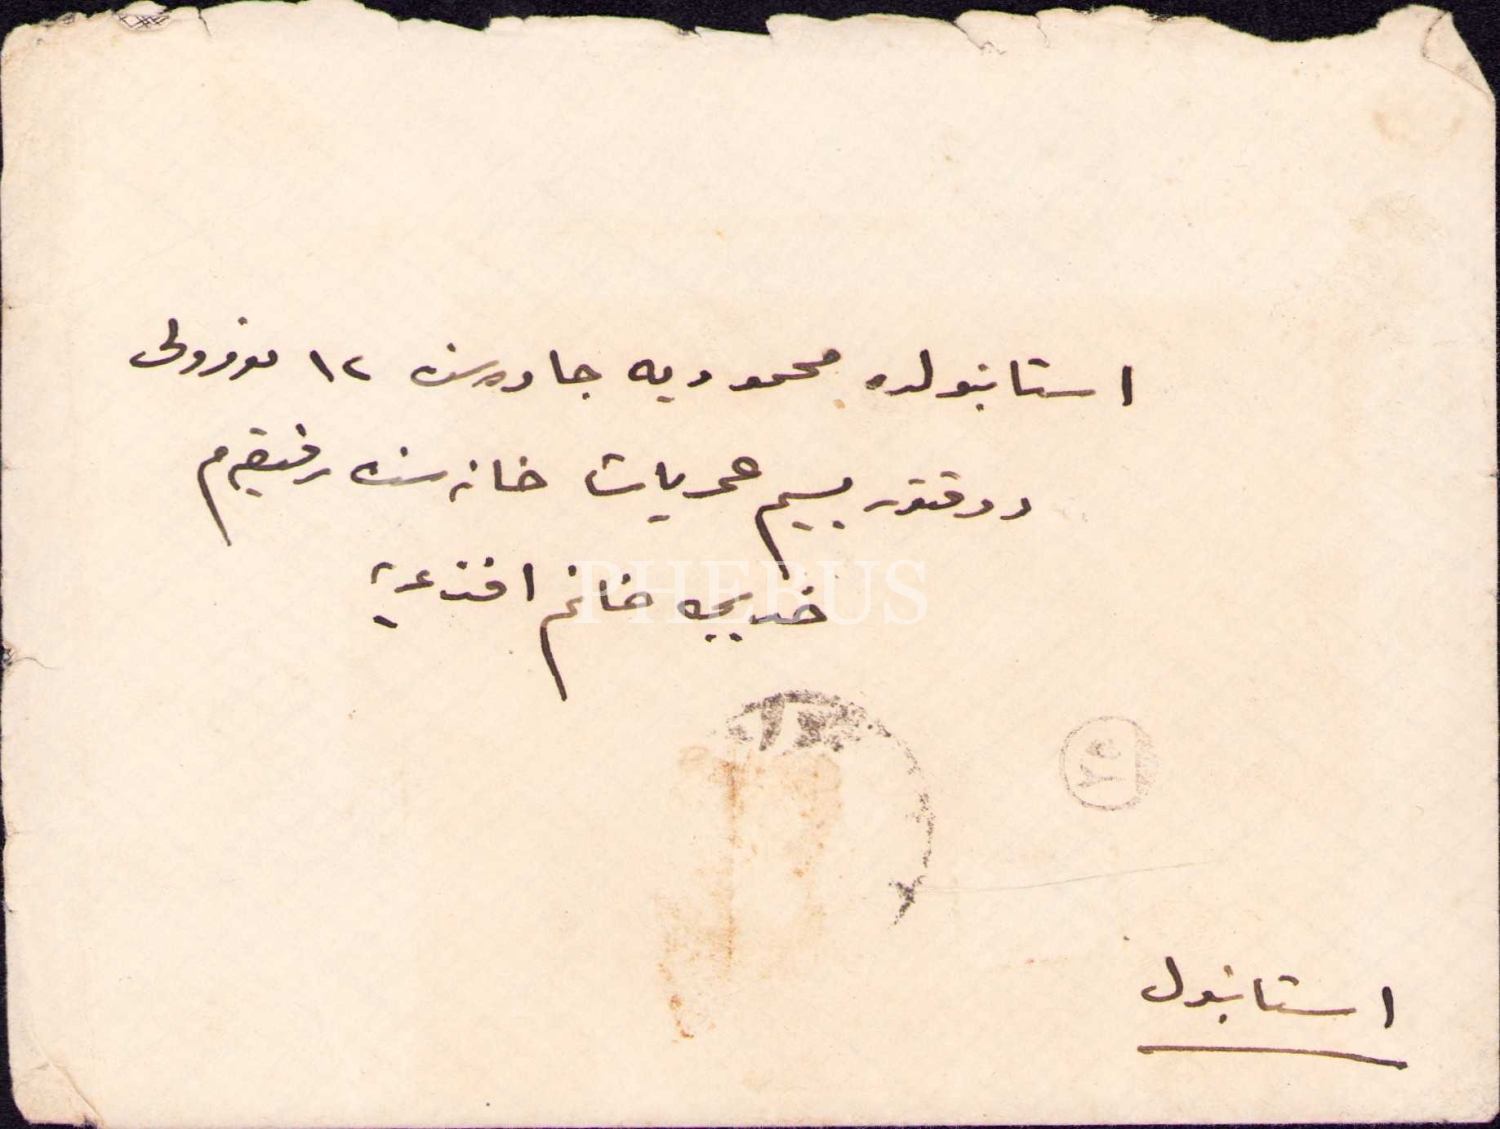 استانبولده محموديه جاده‌سنده ١٢ نومرولى
دوقتور بسيم عمر پاشا خانه‌سنده رفيقه‌م
خديجه خانم افندى‌يه
PHEBUS
استانبول